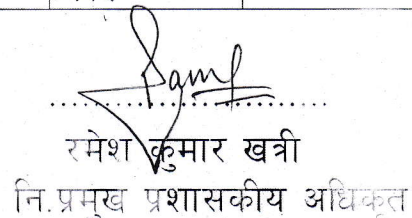 रमेश कुमार खत्री
नि.प्रमुख प्रशासकीय अधिकृत